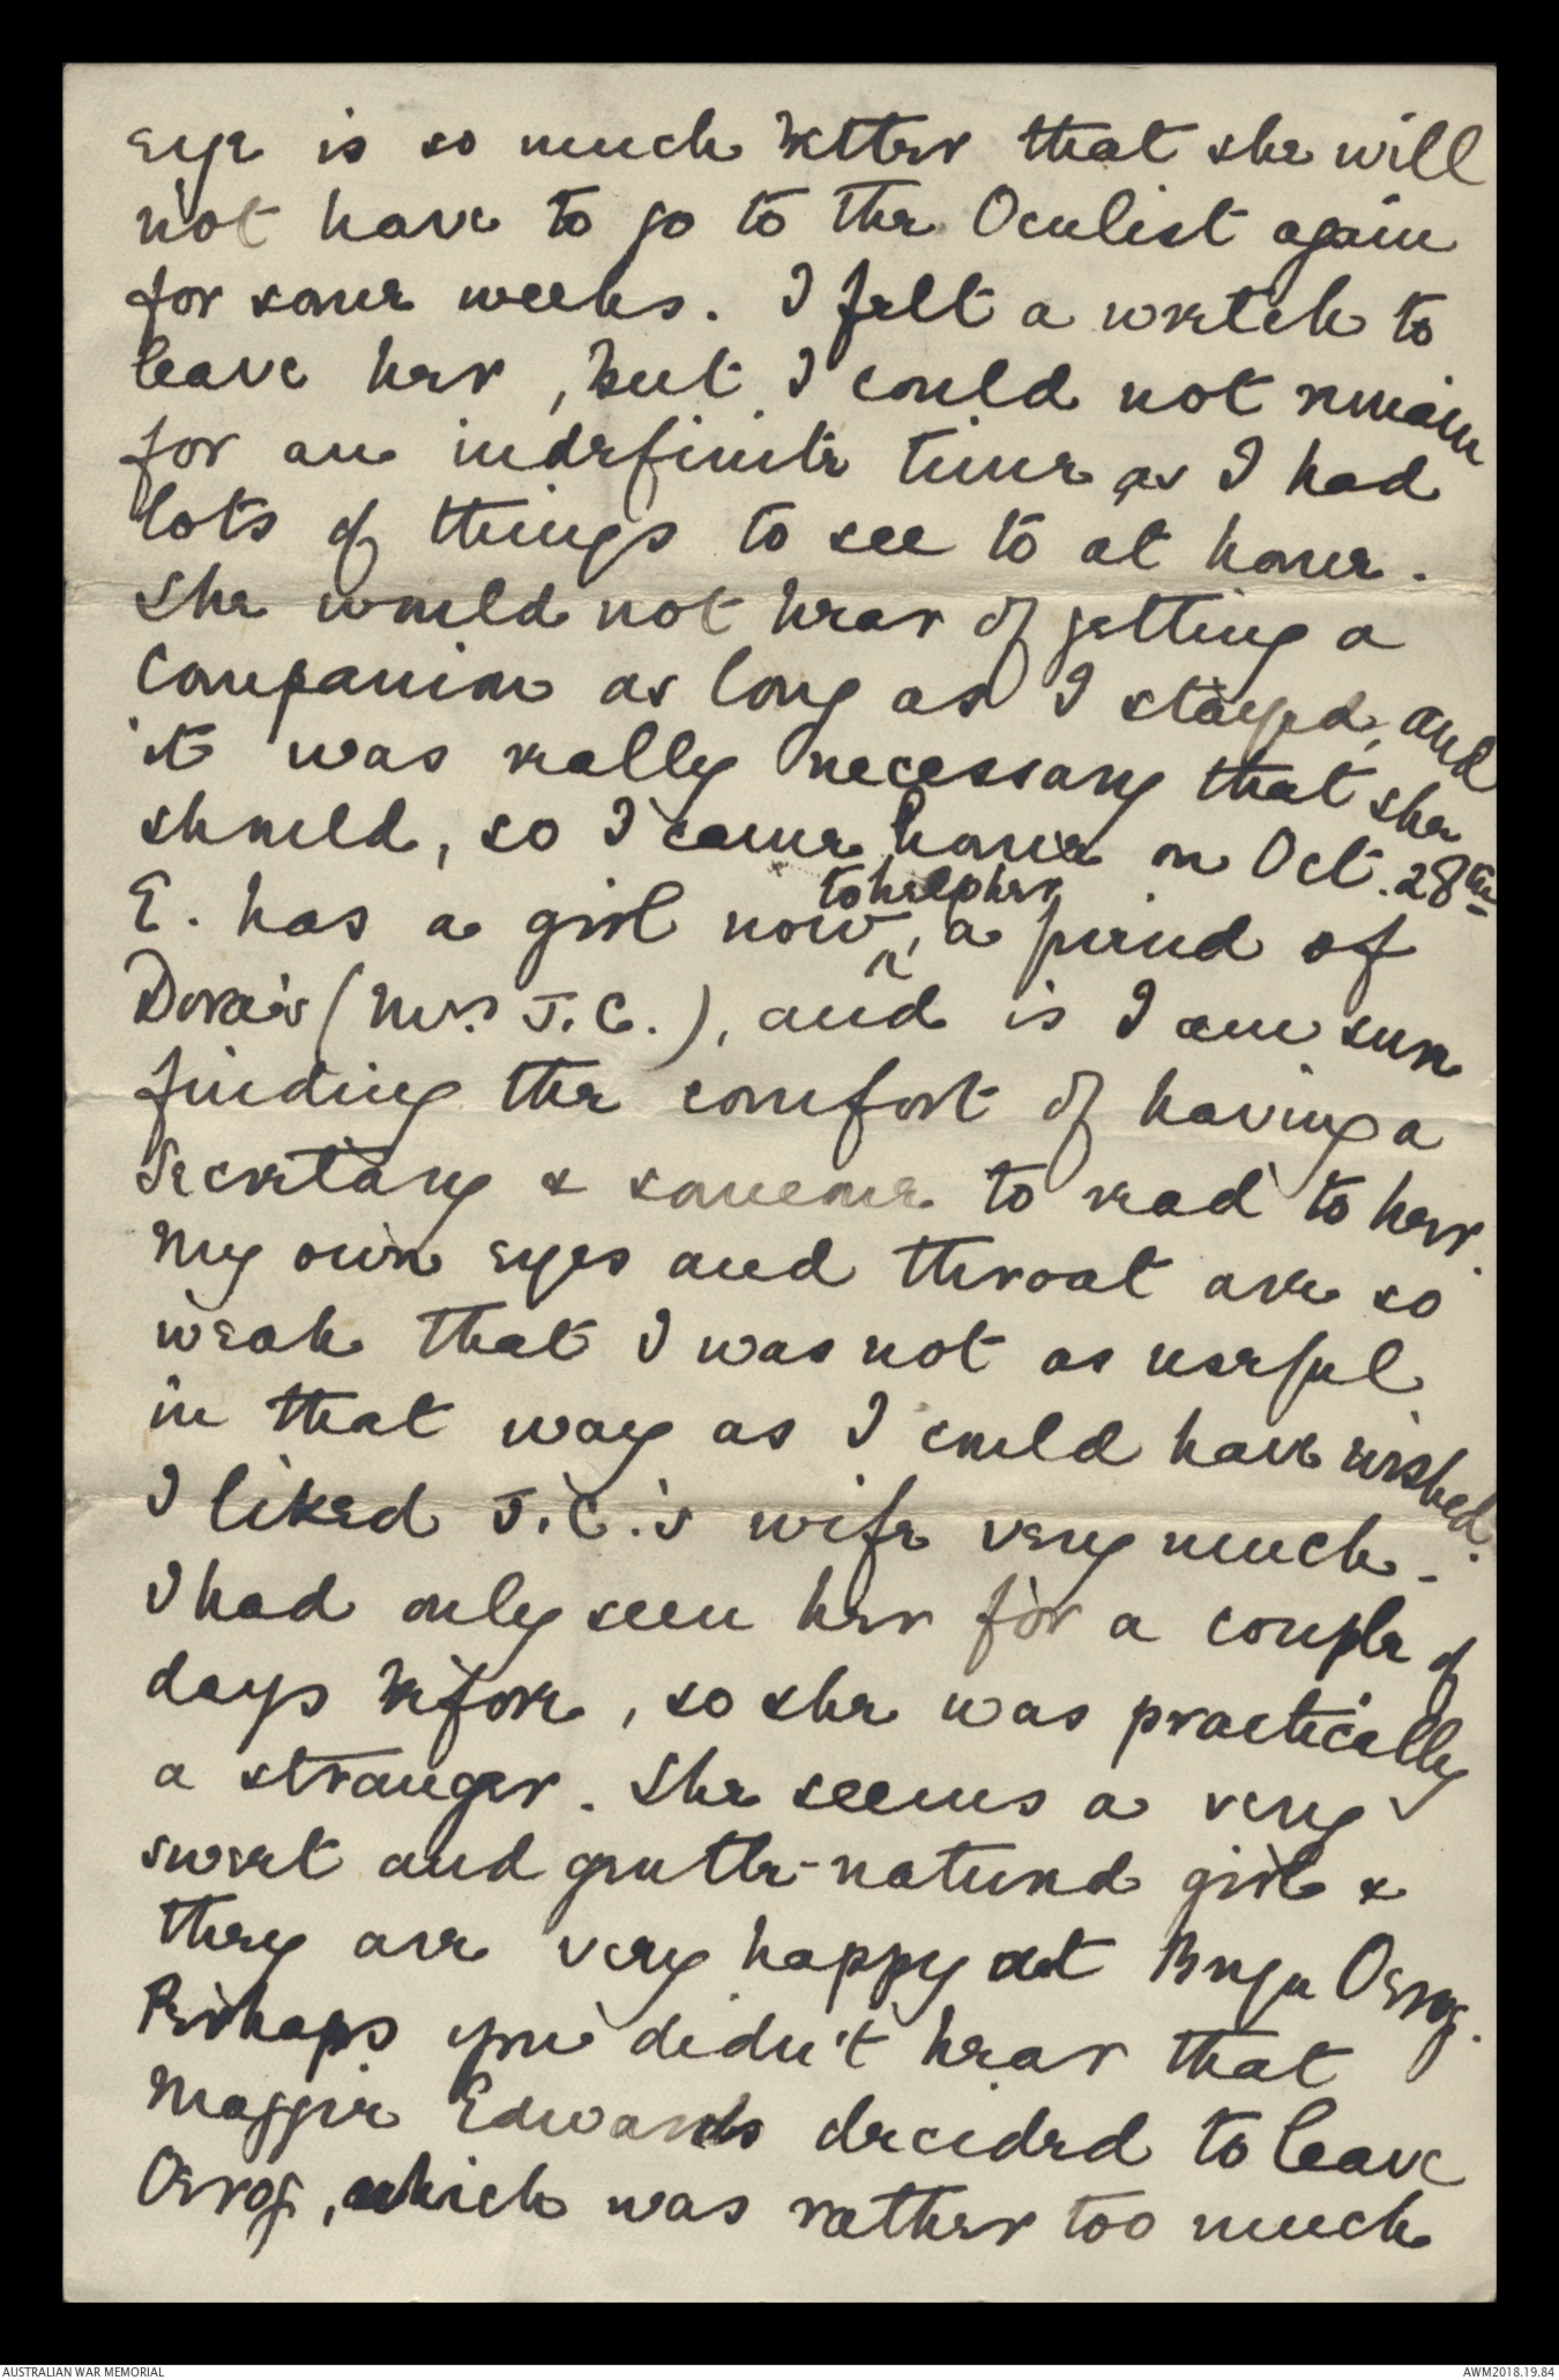 eye is so much better that she will
not have to go to the Oculist again
for some weeks. I felt a wretch to
leave her, but I could not remain
for an indefinite time as I had
lots of things to see to at home.
She would not hear of getting a
Companion as long as I stayed, and
it was really necessary that she
should, so I came home on Oct. 28th
E. has a girl now to help her, a friend of
Dora's (Mrs. J.C.), and is I am sure
finding the comfort of having a
Secretary & someone to read to her.
My own eyes and throat are so
weak that I was not as useful
in that way as I could have wished.
I liked J.C.'s wife very much.
I had only seen her for a couple of
days before, so she was practically
a stranger. She seems a very
sweet and gentle-natured girl &
they are very happy at Oerog.
Perhaps you didn't hear that
Maggie Edwards decided to leave
Oerog, which was rather too much
AUSTRALIAN WAR MEMORIAL
AWM2018.19.84